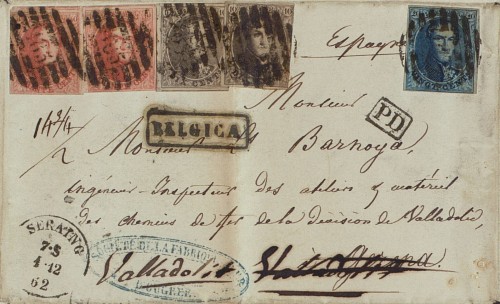 Espagne
Monsieur
14 3/4
/2
BELGICA
PD
Monsieur Barnoya,
ingénieur-Inspecteur des ateliers & matériel
des chemins de fer de la Division de Valladolid,
SERAING
7-S
4-12
62
SOCIÉTÉ DE LA FABRIQUE
OUGREE
Valladolid